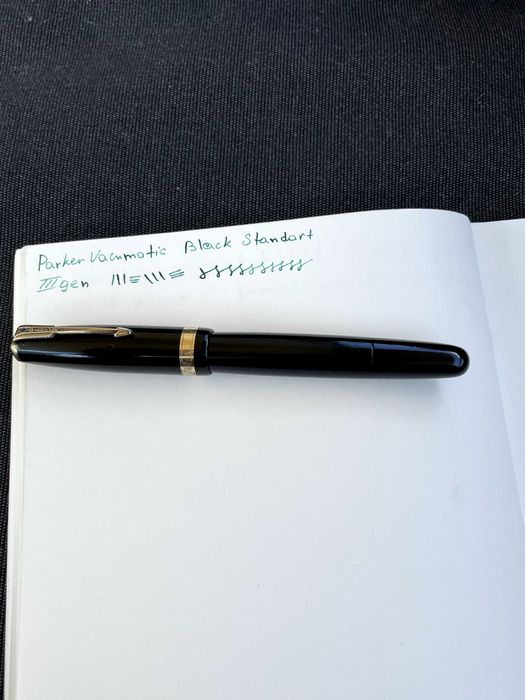 Parker Vacumatic Black Standart
III gen